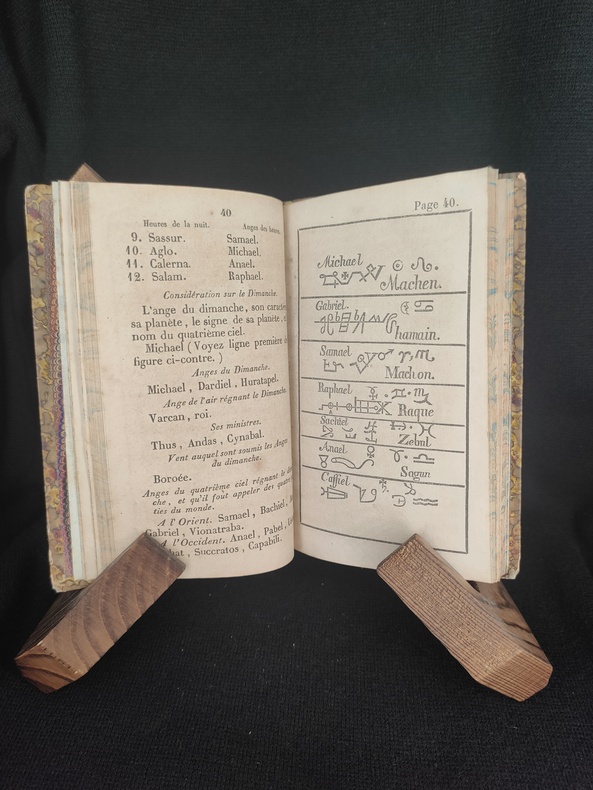 40
Heures de la nuit. Anges des heures.
9. Sassur. Samael.
10. Aglo. Michael.
11. Calerna. Anael.
12. Salam. Raphael.
Considération sur le Dimanche.
L'ange du dimanche, son caract
sa planète, le signe de sa planète,
nom du quatrième ciel.
Michael (Voyez ligne première
figure ci-contre.)
Anges du Dimanche.
Michael, Dardiel, Huratapel.
Ange de l'air régnant le Dimanche.
Varcan, roi.
Ses ministres.
Thus, Andas, Cynabal.
Vent auquel sont soumis les Anges
du dimanche.
Boroée.
Anges du quatrième ciel régnant le
che, et qu'il faut appeler des quat
ties du monde.
A l'Orient. Samael, Bachiel,
Gabriel, Vionatraba.
A l'Occident. Anael, Pabel,
hat, Succratos, Capabili.
Page 40.
Michael ☉ ♌.
Machen.
Gabriel. ☾ ♋
Chamain.
Samael ♂ ♈. ♏
Machon.
Raphael ☿ ♊. ♍
Raque
Sachiel ♃ ♐. ♓
Zebul
Anael ♀ ♉. ♎
Sagun
Caffiel ♄ ♑ ♒